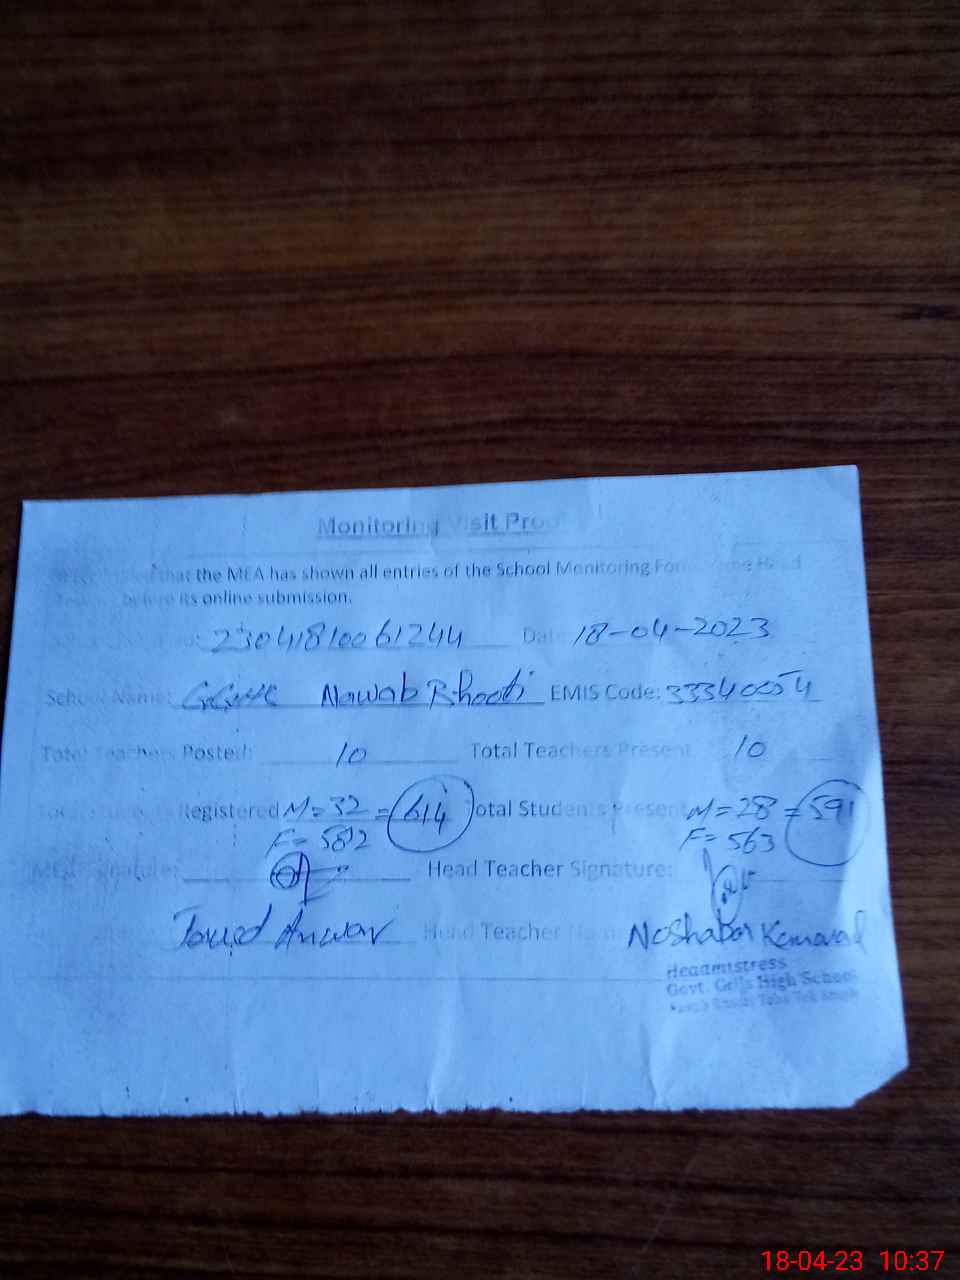 Monitoring Visit Proof
that the MEA has shown all entries of the School Monitoring Form the Head
before its online submission.
23041810061244 Date 18-04-2023
School Name: GGHS Nawab Bhooti EMIS Code: 33340054
Total Teachers Posted: 10 Total Teachers Present 10
Total Students Registered M=32 = 614 Total Students Present M=28 = 591
F=582 F=563
MEA Signature: Head Teacher Signature:
Javed Anwar Head Teacher Name
Headmistress
Govt. Grils High School
18-04-23 10:37